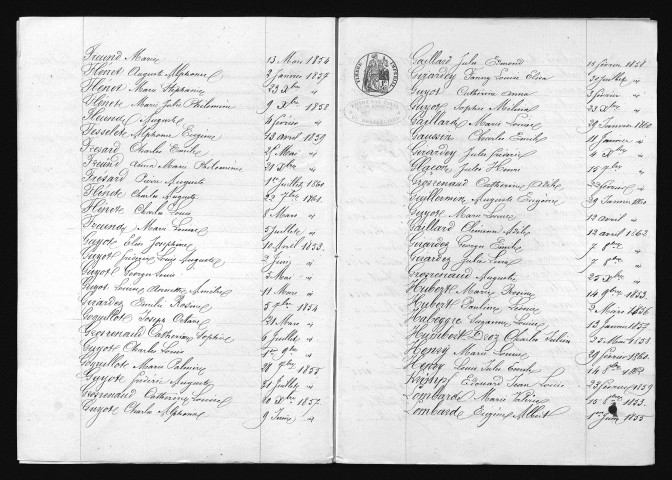 Freund Marie 13 Mars 1854
Flénet Auguste Alphonse 2 Janvier 1857
Flénet Marie Stéphanie 23 Xbre "
Flénet Marie Julie Philomène 9 Xbre 1858
Freund Auguste 6 février "
Fesselet Alphonse Eugène 13 avril 1859
Fresard Charles Emile 25 Mai "
Freund Anna Marie Philomène 21 Xbre "
Fresard Pierre Auguste 1er Juillet 1860
Flénet Charles Auguste 22 7bre 1861
Flénet Charles Louis 8 Mars "
Freund Marie Louise 5 Juillet "
Guyot Elise Joséphine 10 Avril 1853
Guyot Frédéric Louis Auguste 2 Juin "
Guyot Georges Louis 5 Mai "
Guyot Louise Annette 11 Mars "
Girardey Emile Rosine 5 7bre 1854
Goguillot Joseph Octave 21 Mars "
Grosrenaud Catherine Sophie 6 Juillet "
Guyot Charles Louis 1er 9bre "
Goguillot Marie Palmire 28 7bre 1855
Guyot Frédéric Auguste 21 Juillet "
Grosrenaud Catherine Louise 20 Xbre 1857
Guyot Charles Alphonse 9 Juin "
Gaillard Jules Edmond 11 février 1858
Girardey Fanny Louise Elisa 30 Juillet "
Guyot Catherine Anna 3 février "
Guyot Sophie 23 Xbre "
Gaillard Marie Louise 29 Janvier 1860
Gausser Charles Emile 11 Janvier "
Girardey Jules Frédéric 4 Xbre "
Glaçon Jules Henri 15 9bre "
Grosrenaud Catherine Adèle 22 février "
Guillermin Auguste Eugène 29 Janvier
Guyot Marie Louise 12 avril "
Gaillard Adèle 12 avril 1862
Girardey Georges Emile 7 8bre "
Girardey Julie Lina 7 8bre "
Grosrenaud Auguste 25 Xbre "
Hubert Marie Rosine 14 9bre 1853
Hubert Pauline Léonie 2 Mars 1856
Suzanne Louise 13 Janvier 1857
Humbert Droz Charles Julien 25 Mai 1858
Henry Marie Louise 29 février 1860
Henry Louis Jules Emile 14 8bre
Edouard Jean Louis 22 février 1859
Lombard Marie Valérie 15 8bre 1853
Lombard Eugène Albert 1er Juin 1855